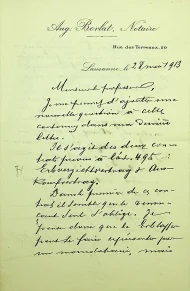 Aug. Berlat, Notaire
Rue des Terreaux. 20
Lausanne, le 28 mai 1913
Monsieur le professeur,
Je me permets d'ajouter une
nouvelle question à celle
contenue dans ma dernière
lettre.
Il s'agit des deux con-
trats prévus à l'art. 495:
Erbverzichtvertrag & Aus-
kaufvertrag.
Dans le premier de ces con-
trats il semble que le renon-
çant seul s'oblige. Je
pense alors que le
peut se faire représenter par
un mandataire, mais